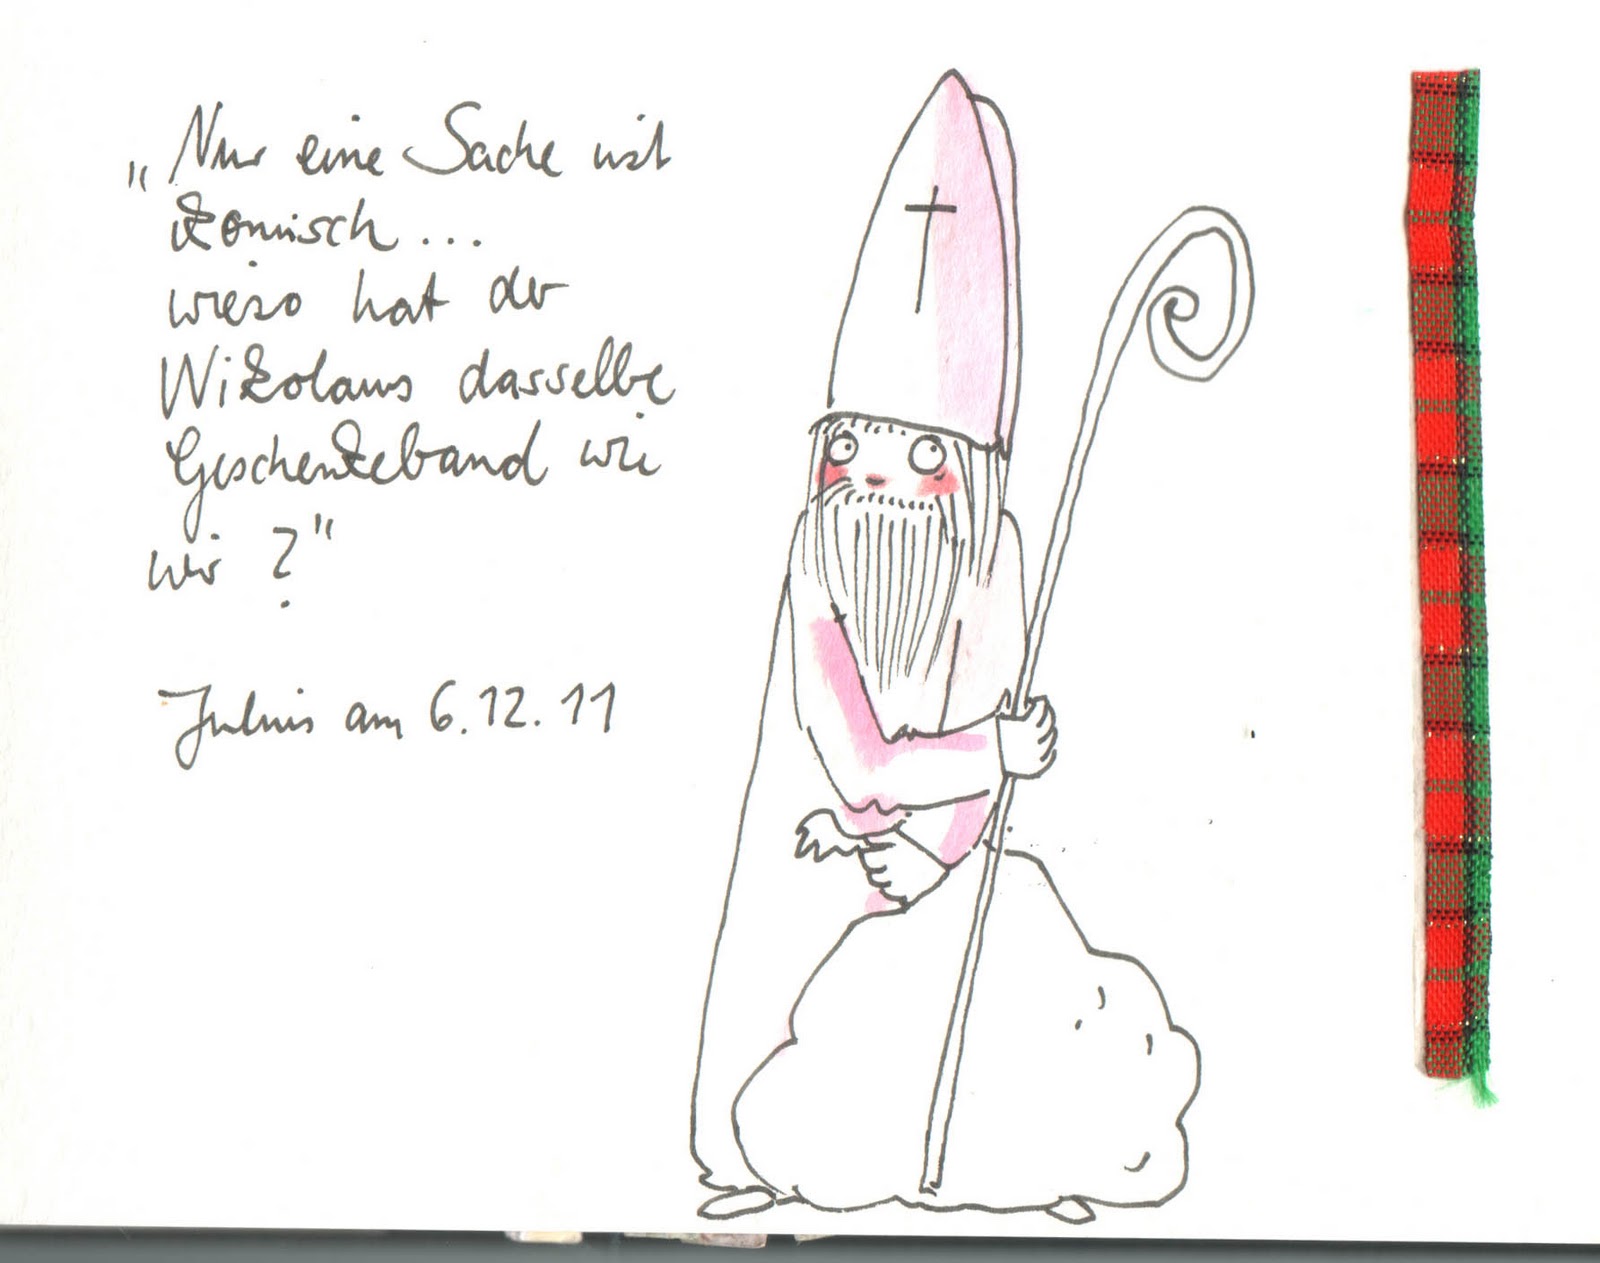 „Nur eine Sache ist
komisch...
wieso hat der
Nikolaus dasselbe
Geschenkeband wie
wir?"
Julius am 6.12.11